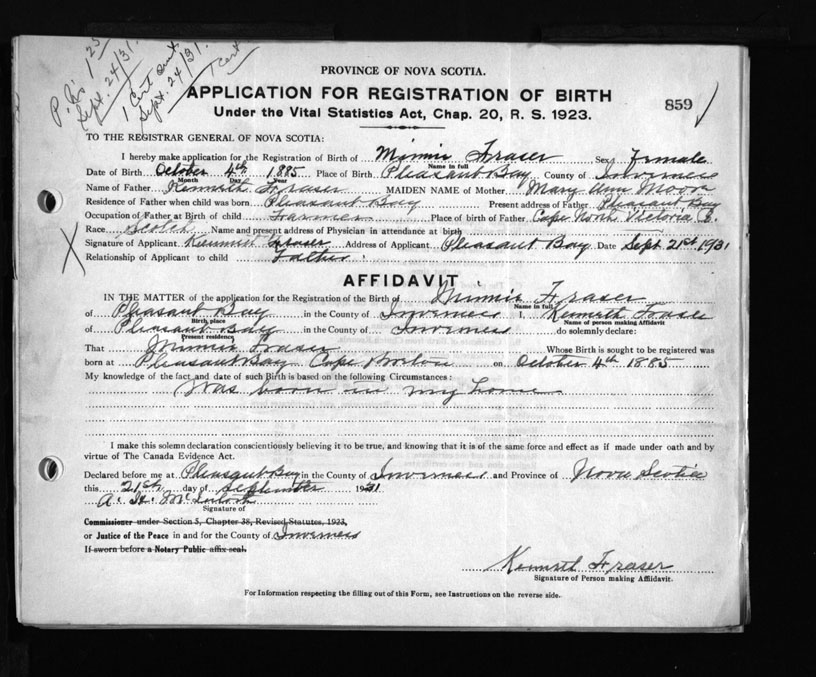 P.N. 1 25
Sept. 24/31.
1 Cert sent
Sept. 24/31.
1 cert.
PROVINCE OF NOVA SCOTIA.
APPLICATION FOR REGISTRATION OF BIRTH
859
Under the Vital Statistics Act, Chap. 20, R. S. 1923.
TO THE REGISTRAR GENERAL OF NOVA SCOTIA:
I hereby make application for the Registration of Birth of Minnie Fraser Sex Female
Name in full
Date of Birth October 4th 1885 Place of Birth Pleasant Bay County of Inverness
Month Day Year
Name of Father Kenneth Fraser MAIDEN NAME of Mother Mary Ann Moore
Residence of Father when child was born Pleasant Bay Present address of Father Pleasant Bay
Occupation of Father at Birth of child Farmer Place of birth of Father Cape North Victoria Co.
Race Scotch Name and present address of Physician in attendance at birth
Signature of Applicant Kenneth Fraser Address of Applicant Pleasant Bay Date Sept 21st 1931
Relationship of Applicant to child Father
AFFIDAVIT
IN THE MATTER of the application for the Registration of the Birth of Minnie Fraser
Name in full
of Pleasant Bay in the County of Inverness I, Kenneth Fraser
Birth place Name of person making Affidavit
of Pleasant Bay in the County of Inverness do solemnly declare:
Present residence
That Minnie Fraser Whose Birth is sought to be registered was
born at Pleasant Bay Cape Breton on October 4th 1885
My knowledge of the fact and date of such Birth is based on the following Circumstances:
Was born in my home
I make this solemn declaration conscientiously believing it to be true, and knowing that it is of the same force and effect as if made under oath and by
virtue of The Canada Evidence Act.
Declared before me at Pleasant Bay in the County of Inverness and Province of Nova Scotia
this 21st day of September 1931
A. H. McIntosh
Signature of
Commissioner under Section 5, Chapter 38, Revised Statutes, 1923,
or Justice of the Peace in and for the County of Inverness
If sworn before a Notary Public affix seal.
Kenneth Fraser
Signature of Person making Affidavit.
For Information respecting the filling out of this Form, see Instructions on the reverse side.